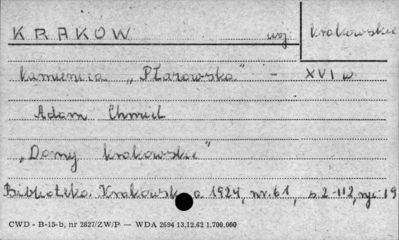 KRAKÓW woj. krakowskie
kamienica „Ptarowska" - XVI w
Adam Chmiel
„Domy krakowskie"
Biblioteka Krakowska 1924, nr. 61, s. 2-112, ryc. 19
CWD - B-15-b, nr 2827/ZW/P — WDA 2694 13.12.62 1.700.000